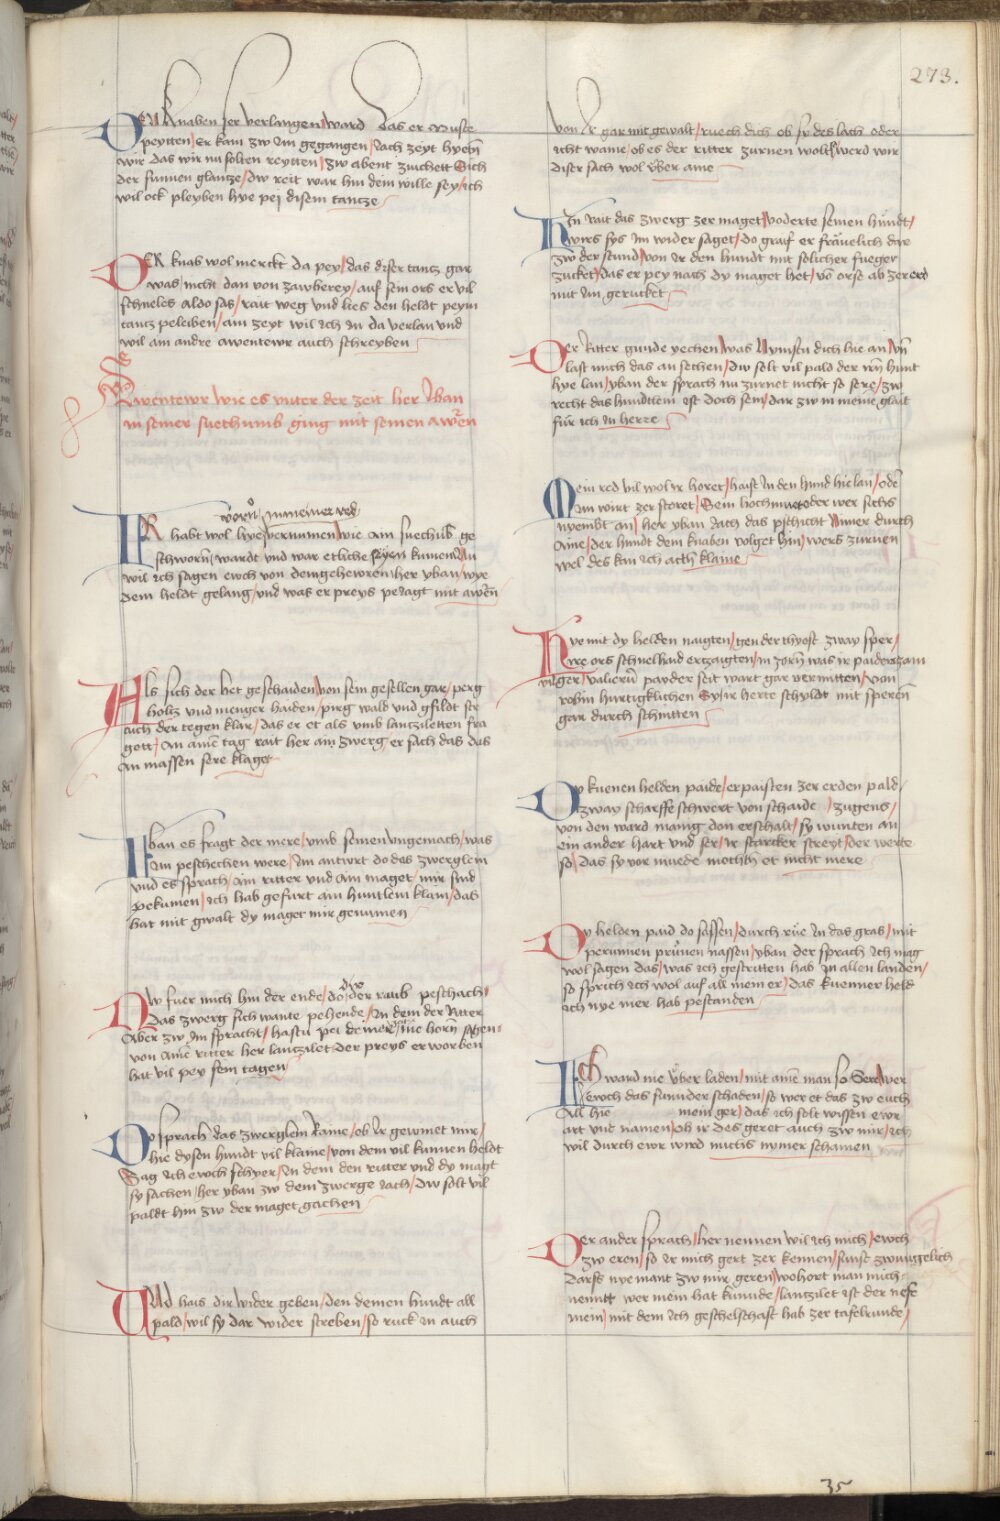 273.
DEN Knaben ser verlangen ward das er muste
peytten / Er kam zw im gegangen / Jach zeyt hyetñ
wir das wir nu solten reytten / zw abent zwischett Sich
der sunnen glantze / dw reit war hin dein wille sey / ich
wil ock pleyben hye pei disem tantze
DER knab wol merckt da pey / das diser tantz gar
was nicht dan von zawberey / auf sein ors er vil
schneles aldo sas / rait weg vnd lies den heldt peym
tantz peleiben / ain zeyt wil ich in da verlan vnd
wil am andre awentewr auch schreyben
Awentewr wie es vnter der zeit her Yban
in seiner suechumb ging mit seinen awẽn
worñ / in meiner red
IR habt wol hye vernumen wie ain suechũg ge
schworñ / wardt vnd war etliche seyen kumen Nu
wil ich sagen ewch von dem gehewren her yban / wye
dem heldt gelang / vnd was er preys peiagt mit awẽn
Als sich der het geschaiden / von sein gesellen gar / perg
holtz vnd meniger haiden / pirg wald vnd gfildt ser
auch der tegen klar / das er et als vmb lantzileten fra
gott / An aine tag rait her ain zwerg er sach das das
an massen sere klaget
Yban es fragt der mere / vmb seinen vngemach / was
im peschechen were / Im antwrt do das zwerglein
vnd es sprach / ain ritter vnd ain maget / mir sind
bekumen / ich hab gefurt ain huntlein klain / das
hat mit gwalt dy maget mir genumen
Nw fuer mich hin der ende / do dir der raub peschach /
Das zwerg sich wante pehende / In dem der Ritter
Aber zw im spracht / hastu pei deiner zeit nie horñ sagen
von aine ritter her lantzilet der preys erworben
hat vil pey sein tagen
Do sprach das zwerglein kaine / ob ir gewinet mir /
hie dysen hundt vil klaine / von dem vil kunnen heldt
Sag ich ewch schyer / In dem den ritter vnd dy magt
sy sachen / her yban zw dem zwerge iach / dw solt vil
paldt hin zw der maget gachen
VNd hais dir wider geben / den deinen hundt all
pald / wil sy dar wider streben / so ruck in auch
von ir gar mit gewalt / ruech dich ob sy des lach oder
icht waine / ob es der ritter zurnen wolt / werd wir
diser sach wol vber aine
Hin rait das zwerg zer maget / voderte seinen hundt /
wirs sys im wider saget / do graif er fräuelich dar
zw der stund / von ir den hundt mit solicher fueger
zucket / das er pey nach dy maget het / võ orse ab zer erd
mit im gerucket
Der Ritter gunde yechen / was Nymstu dich hie an / vñ
last mich das an sechen / dw solt vil pald der mñ hunt
hye lan / yban der sprach nu zurnet nicht so sere / zw
recht das hundtlein ist doch sein / dar zw in meine glait
für ich in herre
Mein red vil wol ir horet / haist in den hund hie lan / oder
im wirt zer storet / Sein hochmuet oder wer sichs
nyembt an / her yban iach das pschicht nimer durch
Aine / der hundt dem knaben volget hin / wers zurnen
wel des kan ich acth klaine
Hye mit dy helden naigten / gen der thyost zway sper /
Irre ors schnelhaid erzaigten / in zorñ was ir paider gam
nilger / valierũ payder seit wart gar vermitten / von
robin hurtigklichen Sys ir herte schyldt mit speren
gar durch schnitten
Dy kuenen helden paide / erpaisten zer erden pald /
zway scharffe schwert von schaide / zugens /
von den ward manig don erschalt / sy wunten an
ein ander hart vnd ser / ir starcker streyt / der werte
so / das sy vor muede mochtñ et nicht mere
Dy helden paid do sassen / durch rüe in das gras / mit
perunnen prünen nassen / yban der sprach ich mag
wol sagen das / was ich gestritten hab in allen landen /
so sprich ich wol auf all mein er / das kuenner held
ich nye mer hab pestanden
Ich ward nie vber laden / mit aine man so Sere / wer
ewch das sunnder schaden / so wer et das zw euch
All hie mein ger / das ich solt wissen ewr
art vnd namen / ob ir des geret auch zw mir / ich
wil durch ewr wird nichts nymer schamen
Der ander sprach / her nennen wil ich mich / ewch
zw eren / so ir mich gert zer kennen / sunst zwinggelich
darst nyemant zw mir geren / wo hort man mich
nenntt wer mein hat kunnde / lantzilet ist der nefe
mein / mit dem ich geschelschaft hab zer tafelrunde /
35